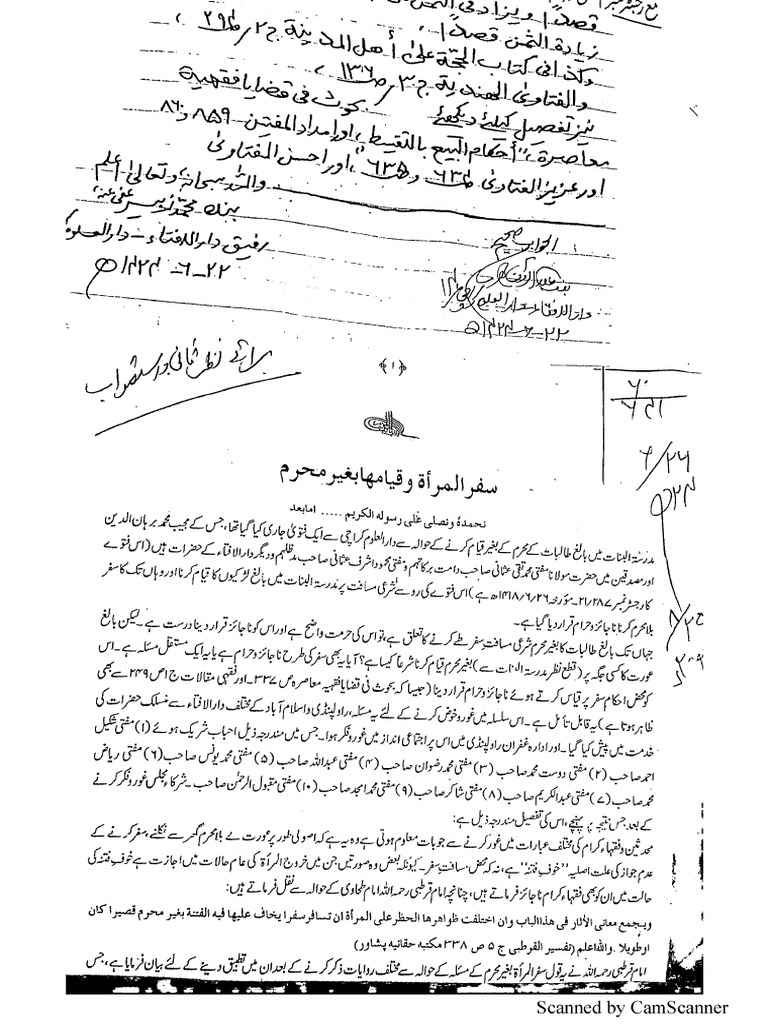 قصداً ویزاد فی الثمن
زیادة الثمن قصداً،
وکذا فی کتاب الحجة علی أهل المدینة ج ۲
والفتاوی الهندیة ج ۳ ص ۱۳۶،
نیز تفصیل کیلئے دیکھئے بحوث فی قضایا فقهیة
معاصرة، "أحکام البیع بالتقسیط، اور امداد المفتین ص ۸۵۹ و ۸۶۰
اور عزیز الفتاوی اور احسن الفتاوی
واللہ سبحانہ وتعالی أعلم
بندہ محمد زبیر عفی عنہ
رفیق دار الافتاء - دار العلوم
۲۲-۶-۱۴۲۴ھ
الجواب صحیح
دار الافتاء دار العلوم
۲۲-۶-۱۴۲۴ھ
برائے نظر ثانی و استصواب
﴿۱﴾
سفر المرأة وقیامها بغیر محرم
نحمدہ ونصلی علی رسولہ الکریم ..... امابعد
مدرسۃ البنات میں بالغ طالبات کے محرم کے بغیر قیام کرنے کے حوالہ سے دارالعلوم کراچی سے ایک فتویٰ جاری کیا گیا تھا، جس کے مجیب محمد برہان الدین
اور مصدقین میں حضرت مولانا مفتی محمد تقی عثمانی صاحب دامت برکاتہم ومفتی محمود اشرف عثمانی صاحب مدظلہم ودیگر دارالافتاء کے حضرات ہیں (اس فتوے
کا رجسٹر نمبر ۲۱/۲۸۷۔ مؤرخہ ۱۴۱۸/۶/۲۶ھ ہے) اس فتوے کی رو سے شرعی مسافت پر مدرسۃ البنات میں بالغ لڑکیوں کا قیام کرنا اور وہاں تک کا سفر
بلامحرم کرنا ناجائز وحرام قرار دیا گیا ہے۔
جہاں تک بالغ طالبات کا بغیر محرم شرعی مسافت سفر طے کرنے کا تعلق ہے، تو اس کی حرمت واضح ہے اور اس کو ناجائز قرار دینا درست ہے۔ لیکن بالغ
عورت کا کسی جگہ پر (قطع نظر مدرسۃ البنات سے) بغیر محرم قیام کرنا شرعاً کیسا ہے؟ آیا یہ بھی سفر کی طرح ناجائز وحرام ہے یا یہ ایک مستقل مسئلہ ہے۔ اس
کو محض احکام سفر پر قیاس کرتے ہوئے ناجائز وحرام قرار دینا (جیسا کہ بحوث فی قضایا فقہیہ معاصرہ ص ۳۳۷۔ اور فقہی مقالات ج اص ۲۴۹ سے بھی
ظاہر ہوتا ہے) یہ قابل تأمل ہے۔ اس سلسلہ میں غور وخوض کرنے کے لئے یہ مسئلہ، راولپنڈی واسلام آباد کے مختلف دارالافتاء سے منسلک حضرات کی
خدمت میں پیش کیا گیا۔ اور ادارہ غفران راولپنڈی میں اس پر اجتماعی انداز میں غور وفکر ہوا۔ جس میں مندرجہ ذیل احباب شریک ہوئے (۱) مفتی شکیل
احمد صاحب (۲) مفتی دوست محمد صاحب (۳) مفتی محمد رضوان صاحب (۴) مفتی عبداللہ صاحب (۵) مفتی محمد یونس صاحب (۶) مفتی ریاض
محمد صاحب (۷) مفتی عبدالکریم صاحب (۸) مفتی شاکر صاحب (۹) مفتی محمد امجد صاحب (۱۰) مفتی مقبول الرحمٰن صاحب۔ شرکاءِ مجلس غور وفکر کرنے
کے بعد، جس نتیجہ پر پہنچے، اس کی تفصیل مندرجہ ذیل ہے:
محدثین وفقہاء کرام کی مختلف عبارات میں غور کرنے سے جو بات معلوم ہوتی ہے وہ یہ ہے کہ اصولی طور پر عورت کے بلامحرم گھر سے نکلنے، سفر کرنے کے
عدم جواز کی علت اصلیہ "خوفِ فتنہ" ہے، نہ کہ محض مسافتِ سفر۔ کیونکہ بعض وہ صورتیں جن میں خروج المرأۃ کی عام حالات میں اجازت ہے خوفِ فتنہ کی
حالت میں ان کو بھی فقہاء کرام ناجائز فرماتے ہیں، چنانچہ امام قرطبی رحمہ اللہ امام طحاوی کے حوالہ سے نقل فرماتے ہیں:
ویجمع معانی الآثار فی هذا الباب وان اختلفت ظواهرها الحظر علی المرأة ان تسافر سفرا یخاف علیها فیه الفتنة بغیر محرم قصیرا کان
اوطویلا. واللہ اعلم (تفسیر القرطبی ج ۵ ص ۳۳۸ مکتبه حقانیه پشاور)
امام قرطبی رحمہ اللہ نے یہ قول سفر المرأۃ بغیر محرم کے مسئلہ کے حوالہ سے مختلف روایات ذکر کرنے کے بعد ان میں تطبیق دینے کے لئے بیان فرمایا ہے، جس
Scanned by CamScanner